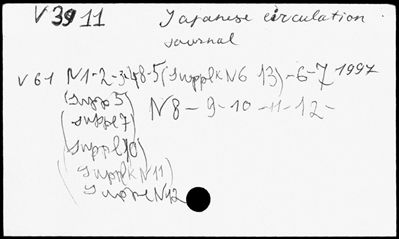 V 39 11 Japanese circulation
journal
V 61 N1-2-3-4-5 (supplk N6 13)-6-7 1997
(supp 5) N8-9-10-11-12-
(suppl 7)
suppl 10)
(supplk N11)
(suppl N12